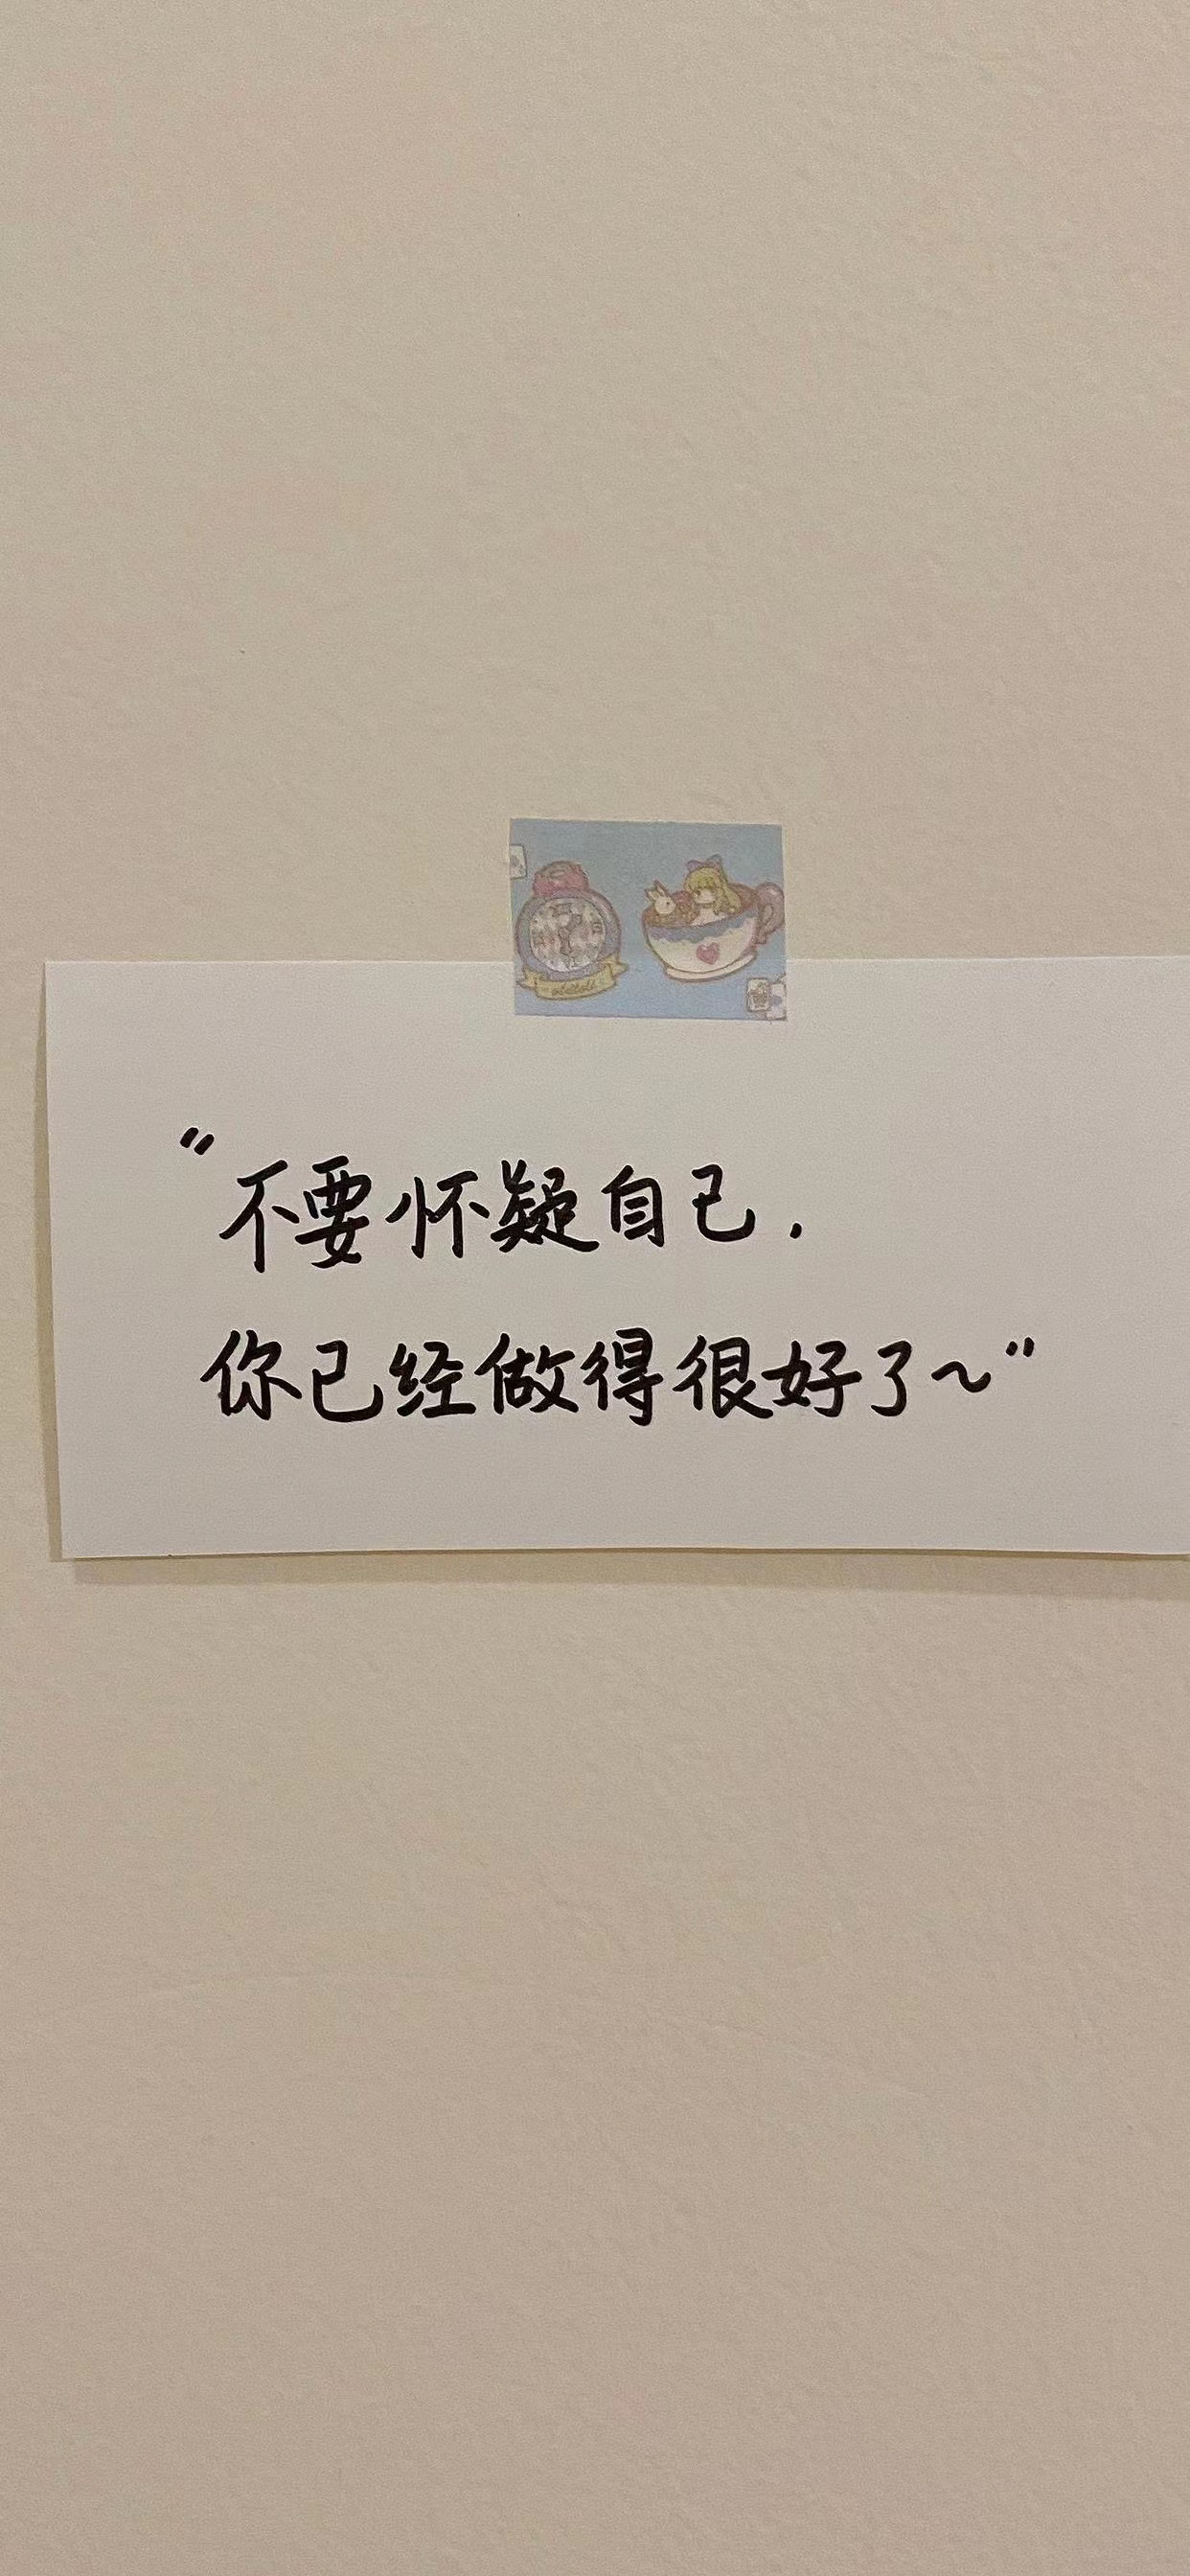 “不要怀疑自己.
你已经做得很好了~”